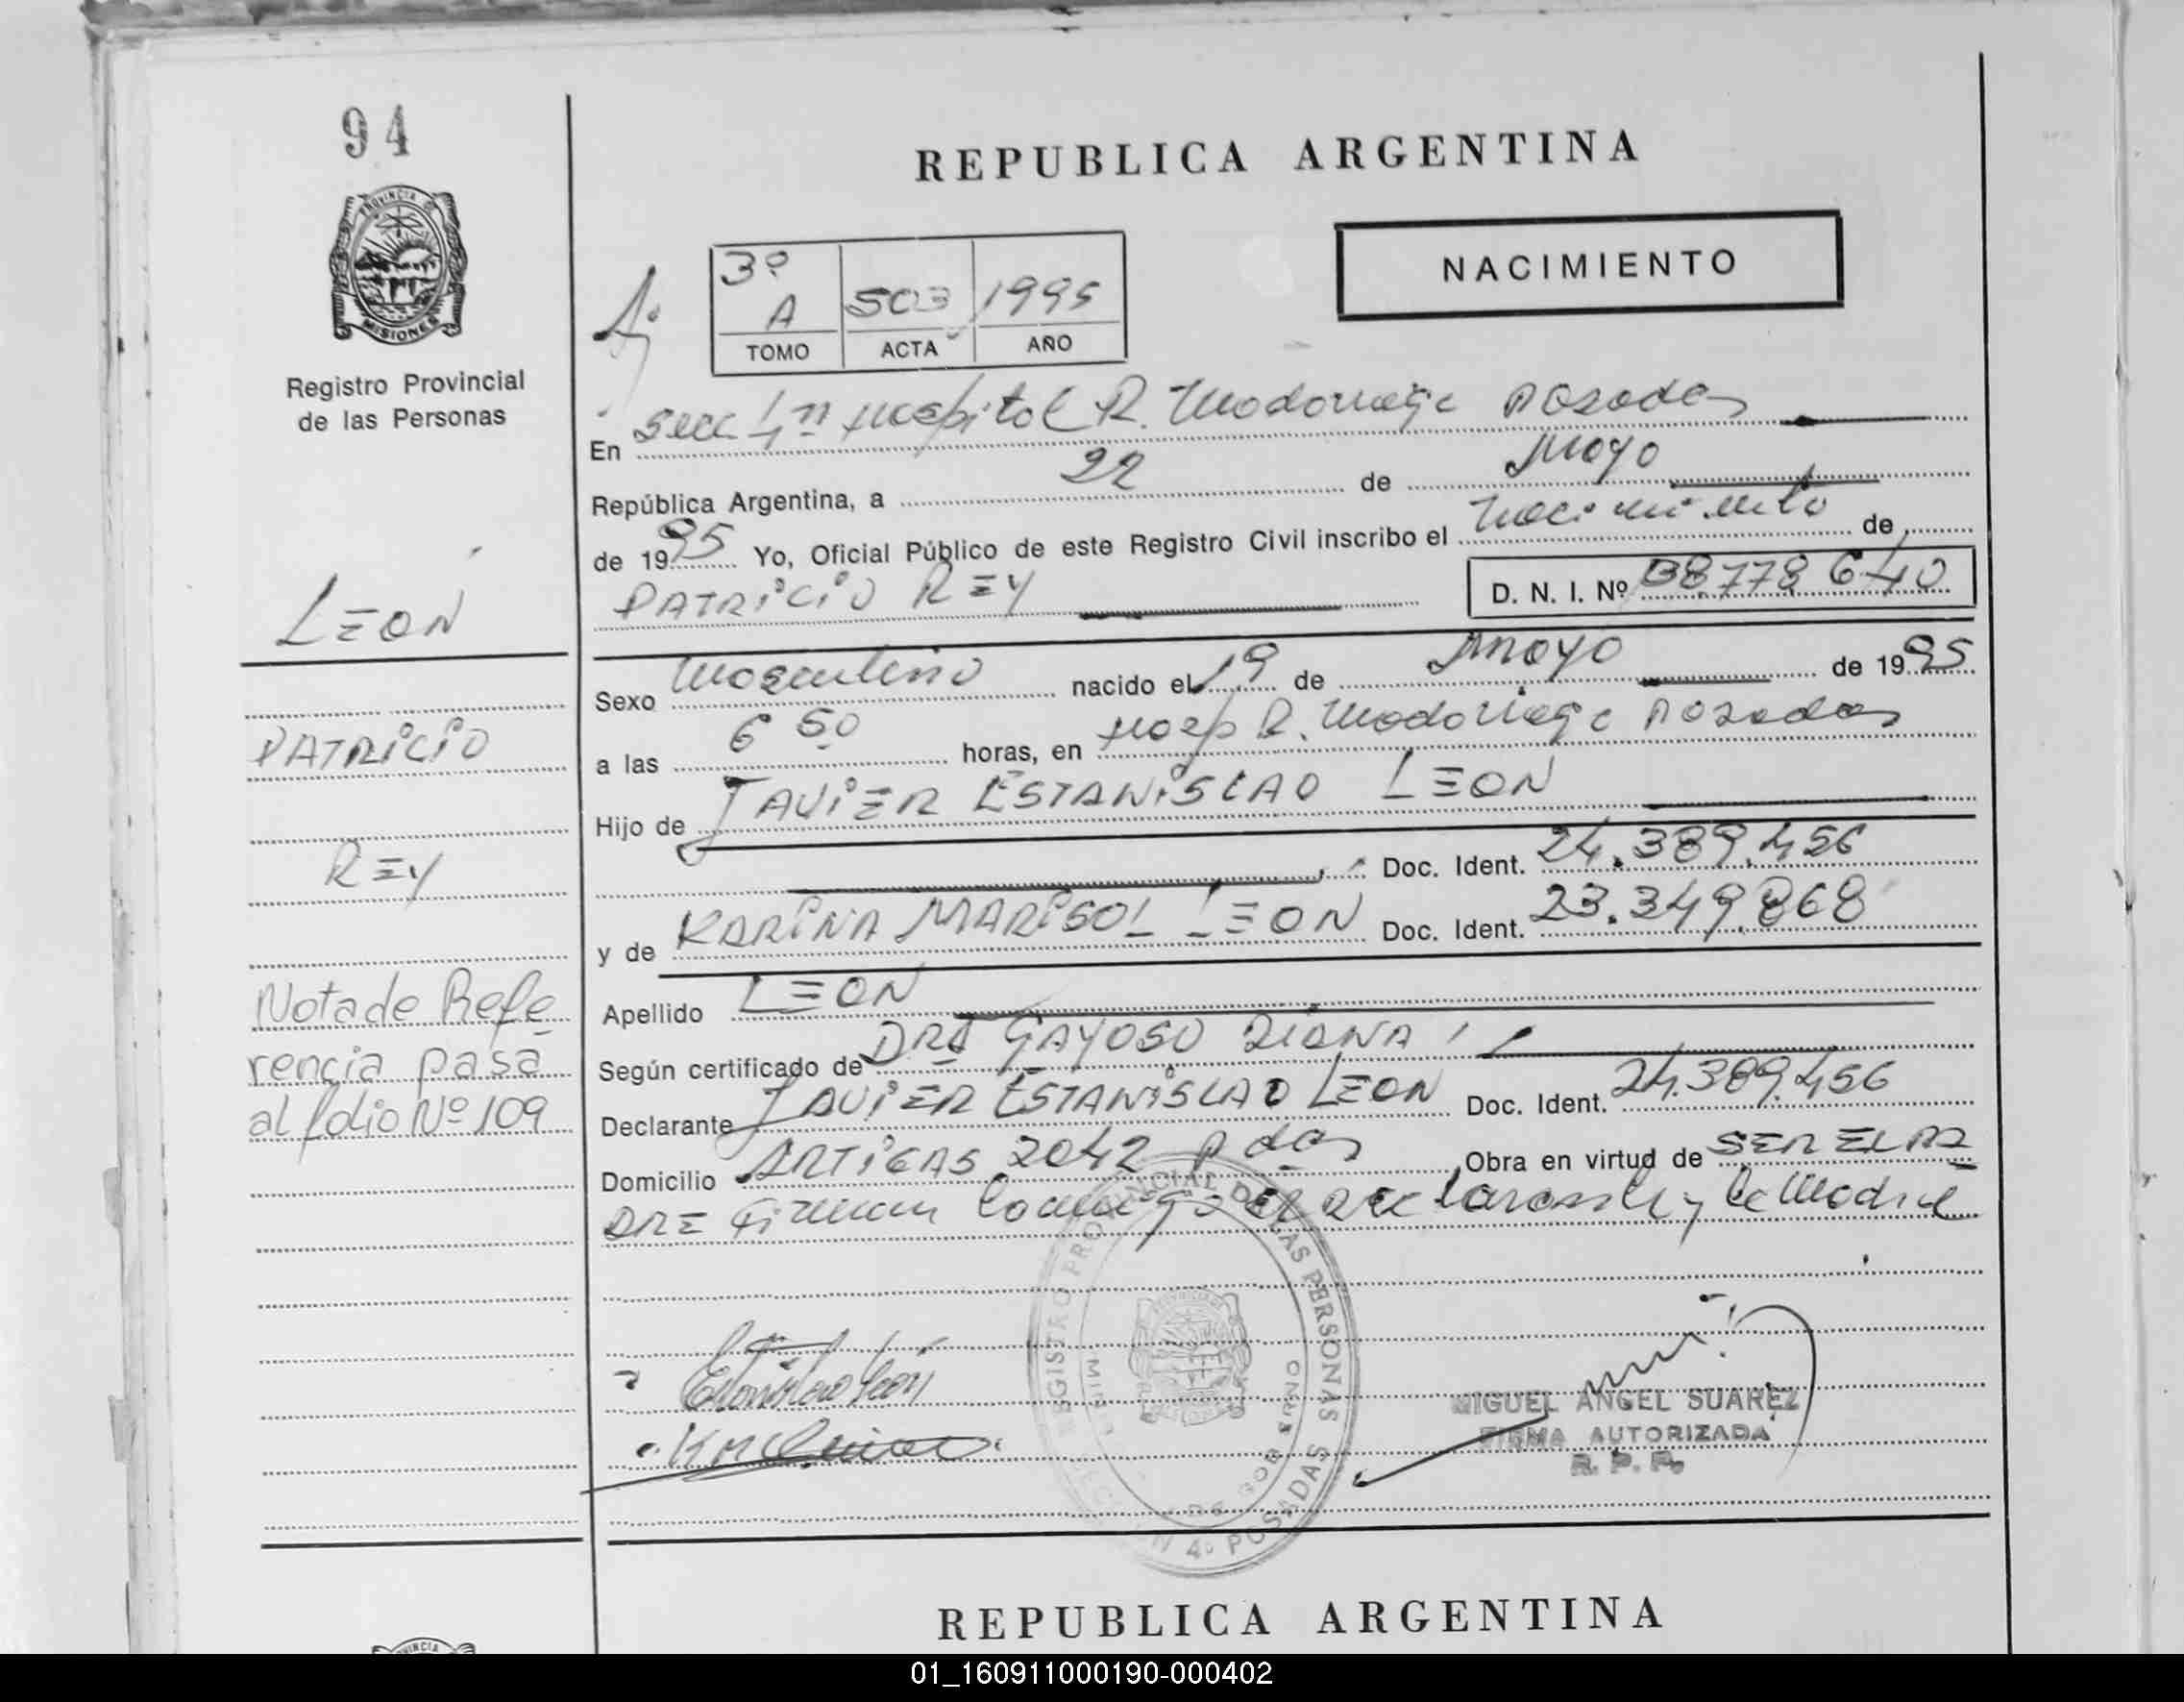 94
PROVINCIA DE
MISIONES
Registro Provincial
de las Personas
LEON
PATRICIO
REY
Nota de Refe
rencia pasa
al folio Nº 109
REPUBLICA ARGENTINA
NACIMIENTO
3º
A 503 1995
TOMO ACTA AÑO
En Secc 4ª Hospital R. Madariaga Posadas
República Argentina, a 22 de Mayo
de 1995 Yo, Oficial Público de este Registro Civil inscribo el Nacimiento de
PATRICIO REY D. N. I. Nº 38.778.640
Sexo Masculino nacido el 19 de Mayo de 1995
a las 6 50 horas, en Hosp R. Madariaga Posadas
Hijo de JAVIER ESTANISLAO LEON
Doc. Ident. 24.389.456
y de KARINA MARISOL LEON Doc. Ident. 23.349.868
Apellido LEON
Según certificado de DRA GAYOSO DIANA
Declarante JAVIER ESTANISLAO LEON Doc. Ident. 24.389.456
Domicilio ARTIGAS 2042 Pdas Obra en virtud de SER EL PA
DRE Firman conmigo el declarante y la Madre
REGISTRO PROVINCIAL DE LAS PERSONAS
4º POSADAS
DE GOBIERNO
Estanislao León
MIGUEL ANGEL SUAREZ
FIRMA AUTORIZADA
R. P. P.
REPUBLICA ARGENTINA
01_160911000190-000402